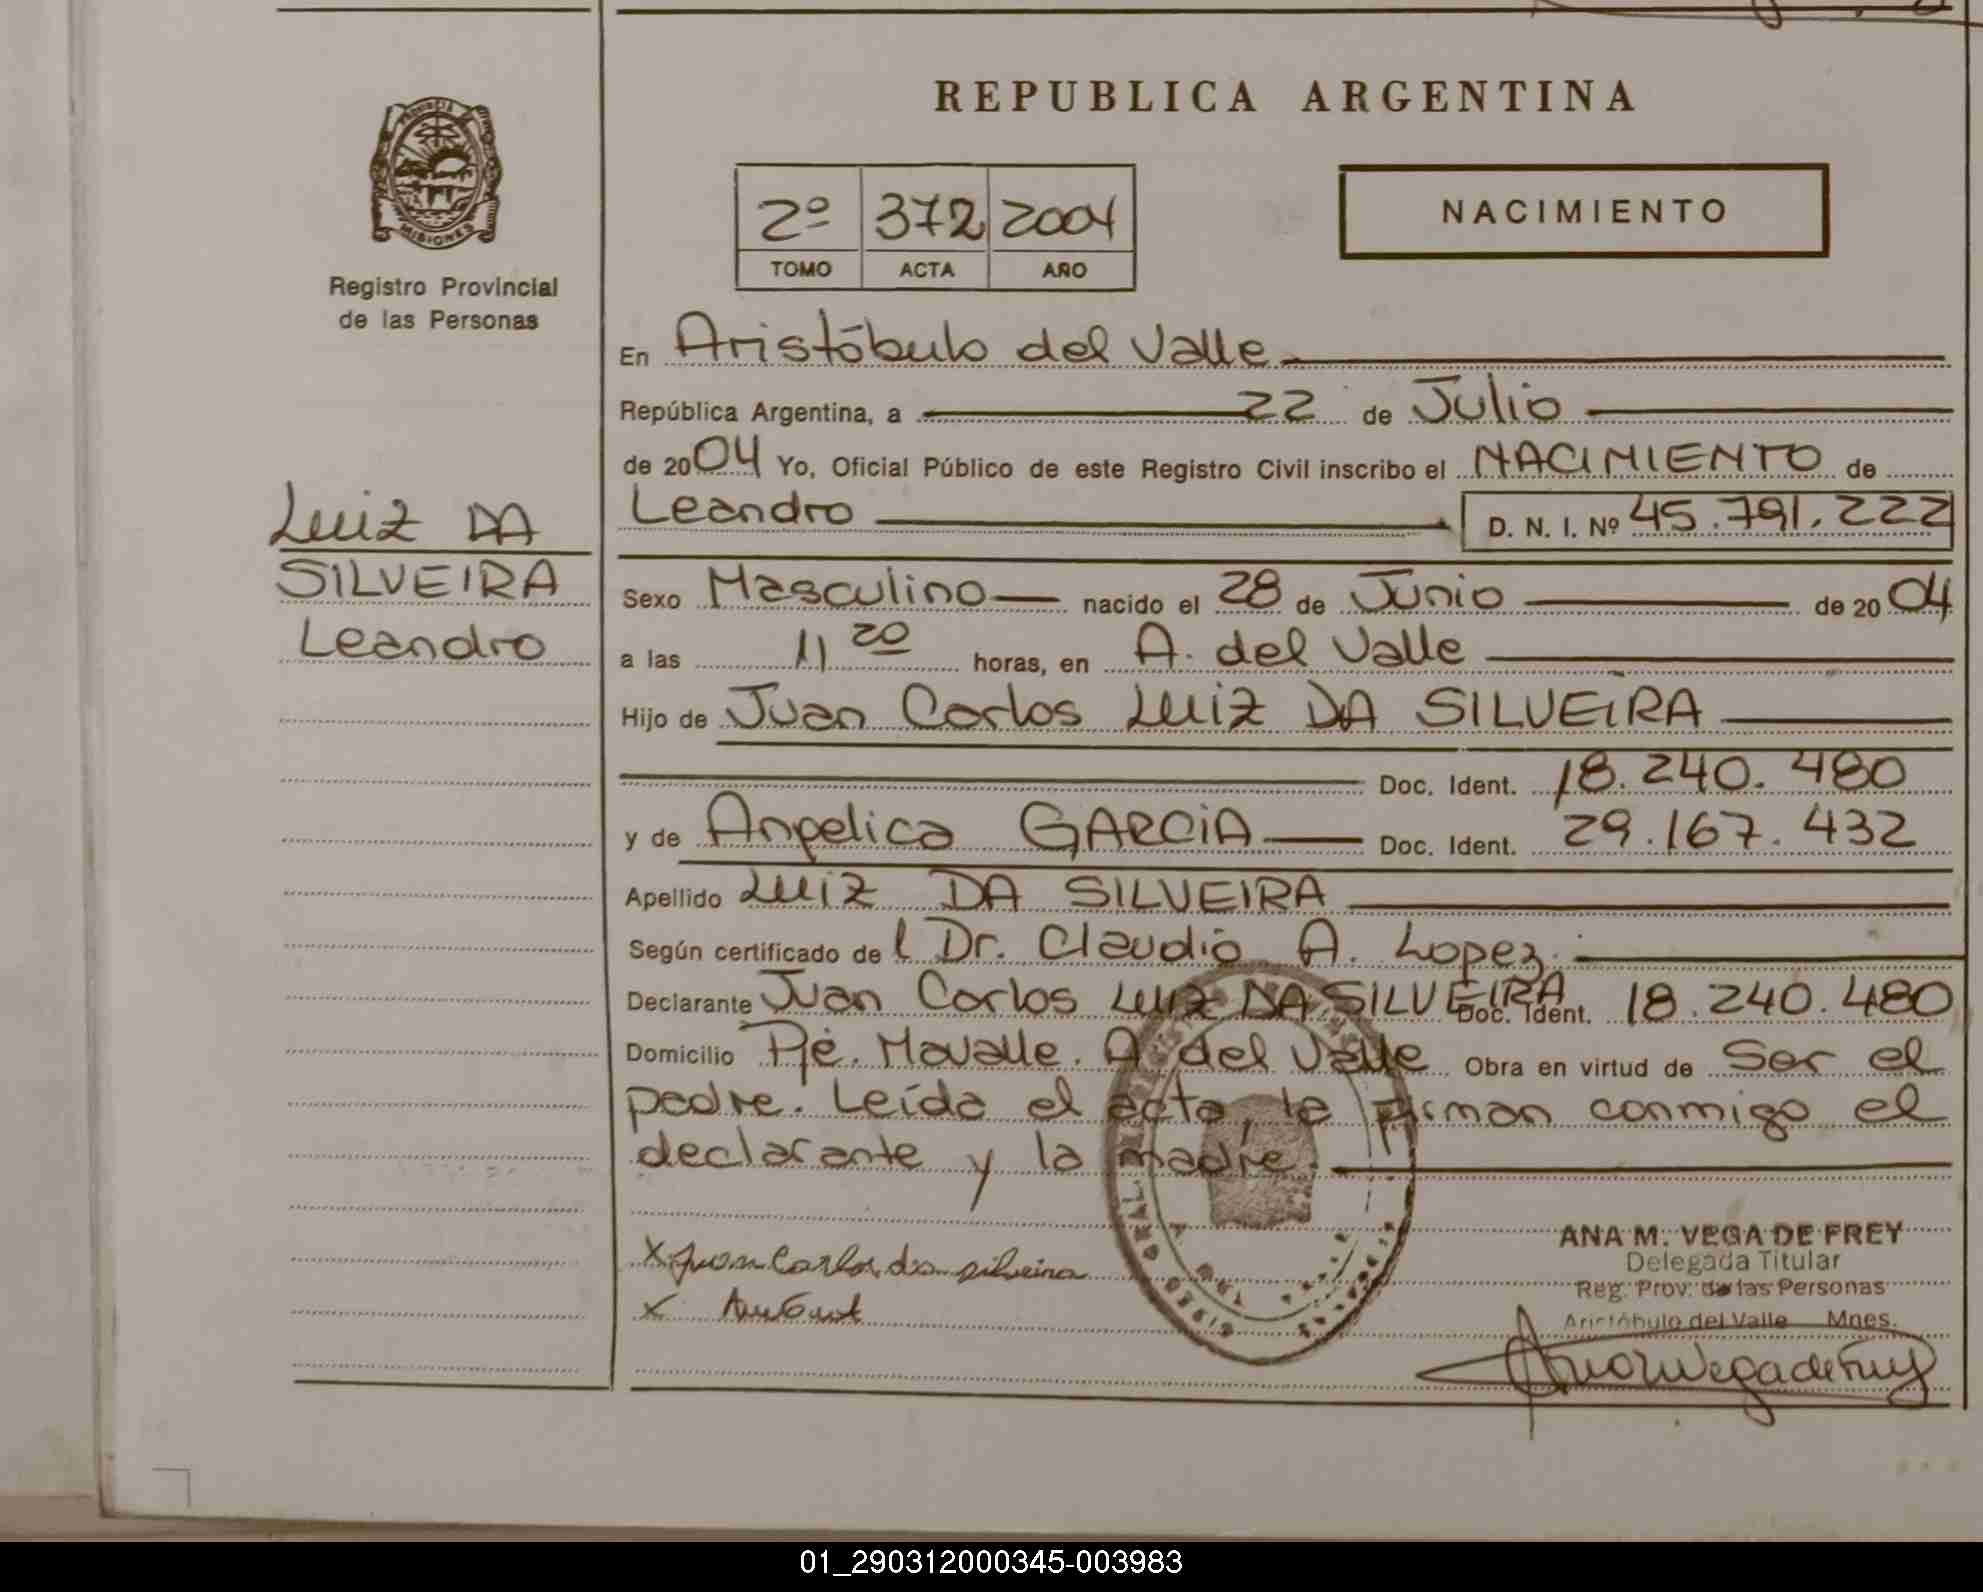 REPUBLICA ARGENTINA
PROVINCIA
MISIONES
Registro Provincial
de las Personas
2º 372 2004
TOMO ACTA AÑO
NACIMIENTO
Luiz DA
SILVEIRA
Leandro
En Aristóbulo del Valle
República Argentina, a 22 de Julio
de 2004 Yo, Oficial Público de este Registro Civil inscribo el NACIMIENTO de
Leandro D. N. I. Nº 45.791.222
Sexo Masculino nacido el 28 de Junio de 2004
a las 11 20 horas, en A. del Valle
Hijo de Juan Carlos Luiz DA SILVEIRA
Doc. Ident. 18.240.480
y de Angelica GARCIA Doc. Ident. 29.167.432
Apellido Luiz DA SILVEIRA
Según certificado del Dr. Claudio A. Lopez.
Declarante Juan Carlos Luiz DA SILVEIRA Doc. Ident. 18.240.480
Domicilio Pje. Mavalle. A del Valle Obra en virtud de Ser el
padre. Leída el acta, la firman conmigo el
declarante y la madre.
x Juan Carlos da silveira
x
ANA M. VEGA DE FREY
Delegada Titular
Reg. Prov. de las Personas
Aristóbulo del Valle Mnes.
Ana M Vega de Frey
01_290312000345-003983